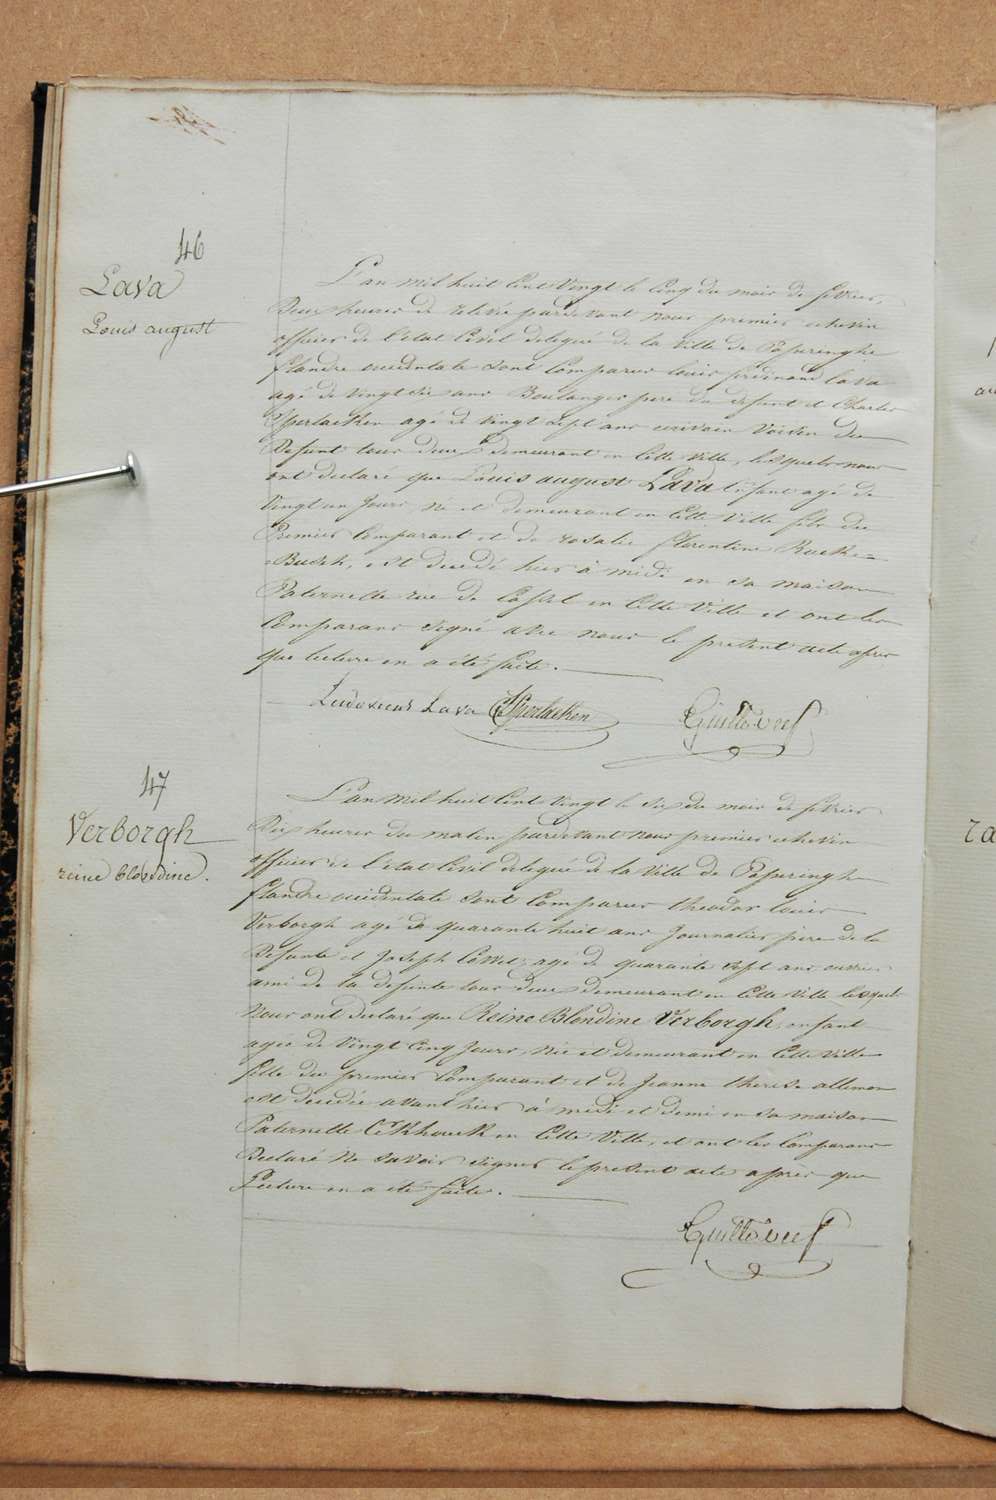 46
Lava
Louis august
L'an mil huit Cent Vingt le Cinq du mois de fevrier,
Deux heures de relevée pardevant nous premier echevin
officier de l'etat Civil delegué de la Ville de Poperinghe
flandre occidentale sont Comparus louis ferdinand lava
agé de vingt six ans Boulanger pere du defunt et Charles
Sperlaeken agé de vingt sept ans ecrivain Voisin du
Defunt tous deux demeurant en Cette Ville, lesquels nous
ont declaré que Louis august Lava Enfant agé de
Vingt un Jours, né et demeurant en Cette Ville fils du
Premier Comparant et de rosalie florentine
Busch, est decedé hier à midi en sa maison
Paternelle rue de Cassel en Cette Ville et ont les
Comparans signé avec nous le present acte apres
que lecture en a été faite.
Ludovicus Lava Sperlaeken
47
Verborgh
reine blondine.
L'an Mil huit Cent Vingt le six du mois de fevrier
Dix heures du matin pardevant nous premier echevin
officier de l'etat Civil delegué de la Ville de Poperingh
flandre occidentale sont Comparus theodor louis
Verborgh agé de quarante huit ans Journalier pere de la
Defunte et Joseph agé de quarante sept ans ouvrier
ami de la defunte tous deux demeurant en Cette Ville lesquels
Nous ont declaré que Reine Blondine Verborgh, enfant
agée de Vingt Cinq Jours, née et demeurant en Cette Ville
fille du premier Comparant et de Jeanne therese alleman
est decedée avant hier à midi et demi en sa maison
Paternelle en Cette Ville, et ont les Comparans
Declaré ne savoir signer le present acte après que
Lecture en a été faite.